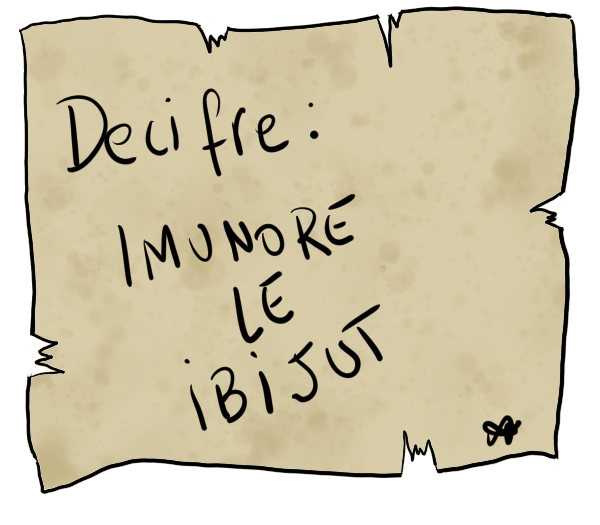 Decifre:
IMUNORE
LE
IBIJUT